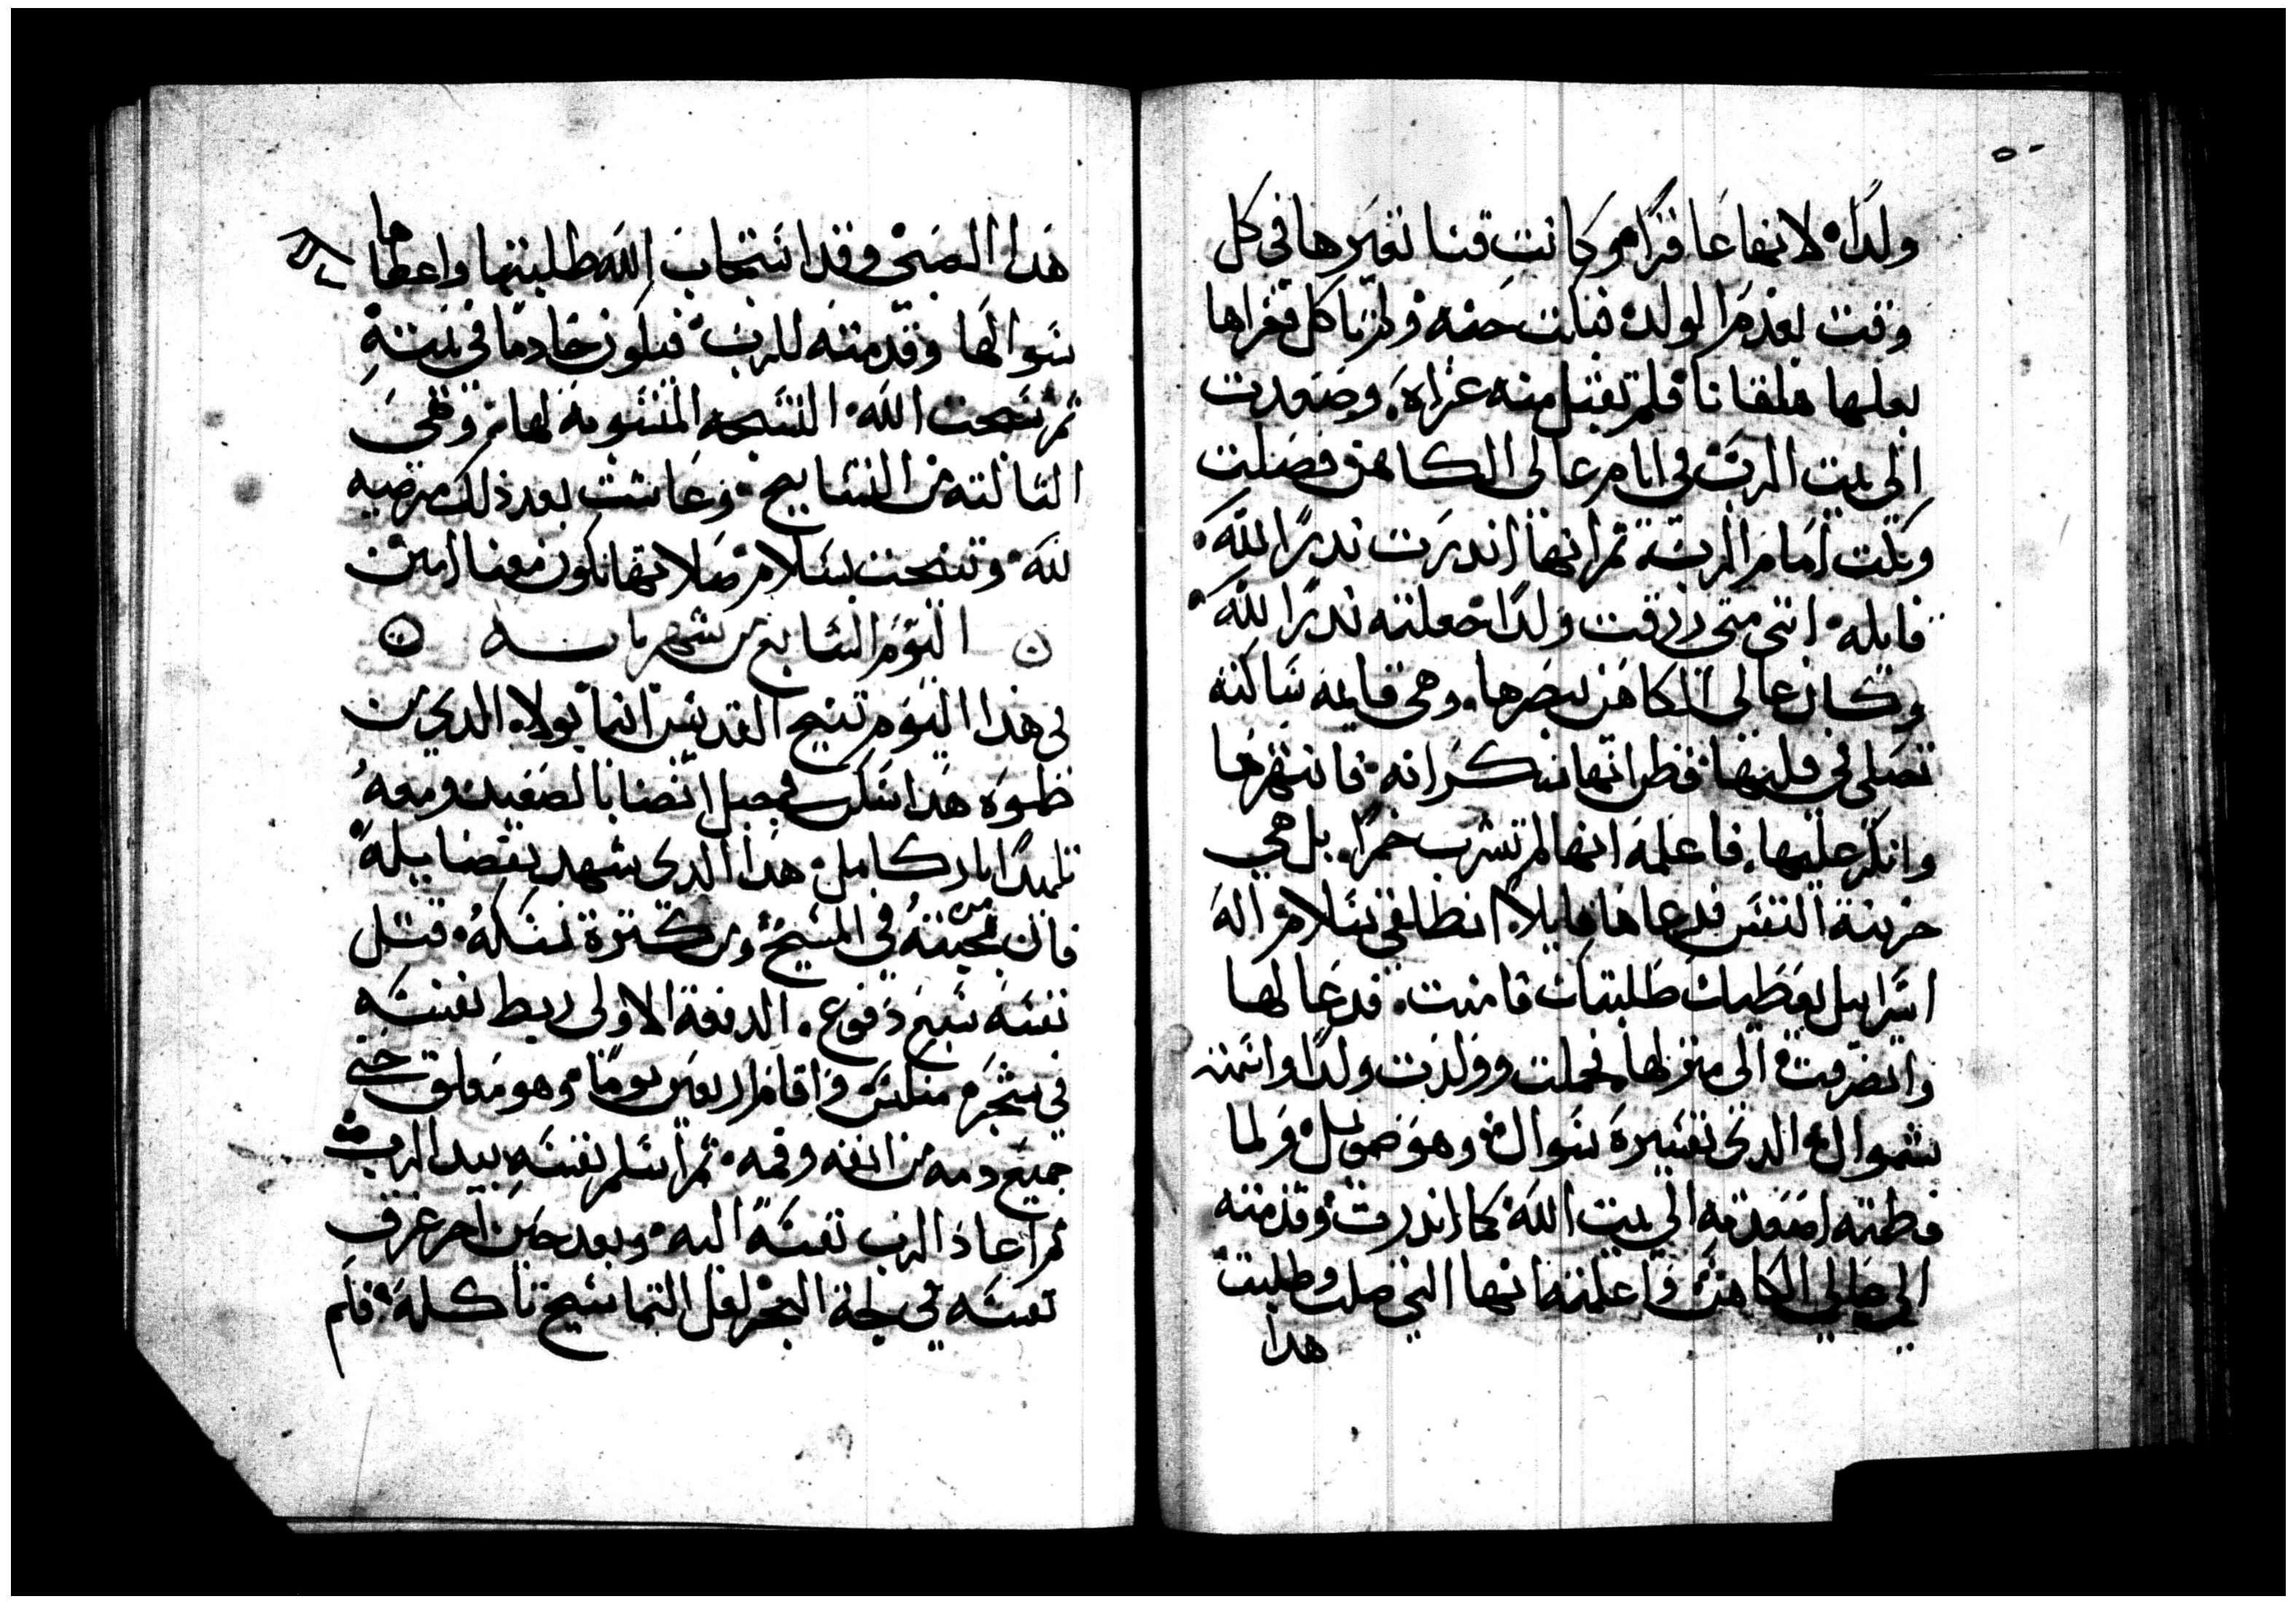 ولدًا لانها عاقرًا وكانت فننا تعيرها في كل
وقت بعدم الولد فبكت حنه ولم تاكل فعزاها
بعلها هلقانا فلم تقبل منه عزاه وصعدت
الى بيت الرب في ايام عالى الكاهن فصلت
وبكت امام الرب ثم انها اندرت ندرًا لله
قايله انني متى رزقت ولدًا جعلته ندرًا لله
وكان عالى الكاهن يبصرها وهى قايمه ساكته
تصلى في قلبها فظن انها سكرانه فانتهرها
وانكر عليها فاعلمه انها لم تشرب خمرًا بل هي
حزينة النفس فدعاها قايلا انطلقى بسلام واله
اسراييل يعطيك طلبتك فامنت فدعا لها
وانصرفت الى منزلها فحملت وولدت ولدًا واسمته
شموال الدى تفسيره سوال وهو صمويل ولما
فطمته اصعدته الى بيت الله كما اندرت وقدمته
الى عالي الكاهن واعلمته انها التى صلت وطلبت
هدا
هدا الصبى وقد استجاب الله طلبتها واعطاها
سوالها وقدمته للرب فيكون خادمًا في بيته
ثم سبحت الله التسبحه المنسوبه لها وهى
الثالثه من التسابيح وعاشت بعد ذلك مرضيه
لله وتنيحت بسلام صلاتها تكون معنا امين
اليوم السابع من شهر بابه
في هدا اليوم تنيح القديس انبا بولا الدي من
طموه هدا سكن في جبل انصنا بالصعيد ومعه
تلميدًا باركامل هدا الدى شهد بفضايله
فان من محبته في المسيح ومن كترة نسكه قتل
نفسه سبع دفوع الدفعة الاولى ربط نفسه
في شجره منكس واقام اربعين يومًا وهو معلق حتى
جميع دمه من انفه وفمه ثم اسلم نفسه بيد الرب
ثم اعاد الرب نفسه اليه وبعد حين اخر غرق
نفسه في لجة البحر لعل التماسيح تاكله فلم